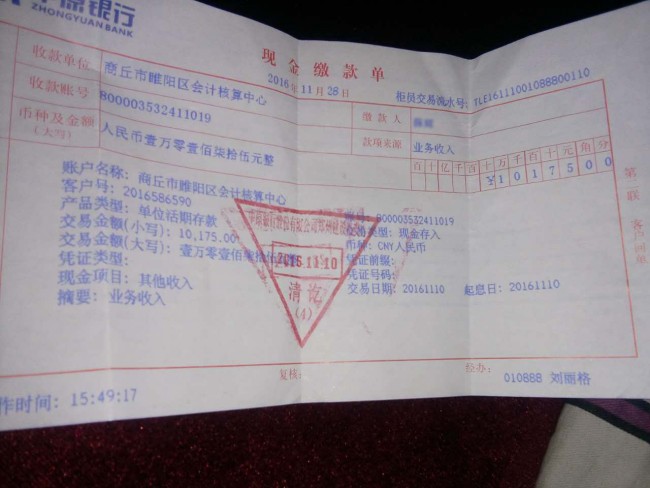 中原银行
ZHONGYUAN BANK
现金缴款单
2016年11月28日
柜员交易流水号: TLE16111001088800110
收款单位 商丘市睢阳区会计核算中心
缴款人
收款账号 800003532411019
款项来源 业务收入
币种及金额(大写) 人民币壹万零壹佰柒拾伍元整
百十亿千百十万千百十元角分
¥1017500
账户名称: 商丘市睢阳区会计核算中心
客户号: 2016586590
800003532411019
产品类型: 单位活期存款
交易类型: 现金存入
交易金额(小写): 10,175.00
币种: CNY人民币
交易金额(大写): 壹万零壹佰柒拾伍元整
凭证前缀:
凭证类型:
凭证号码:
现金项目: 其他收入
交易日期: 20161110 起息日: 20161110
摘要: 业务收入
2016.11.10
清讫
(4)
第二联 客户回单
复核:
经办:
010888 刘丽格
作时间: 15:49:17